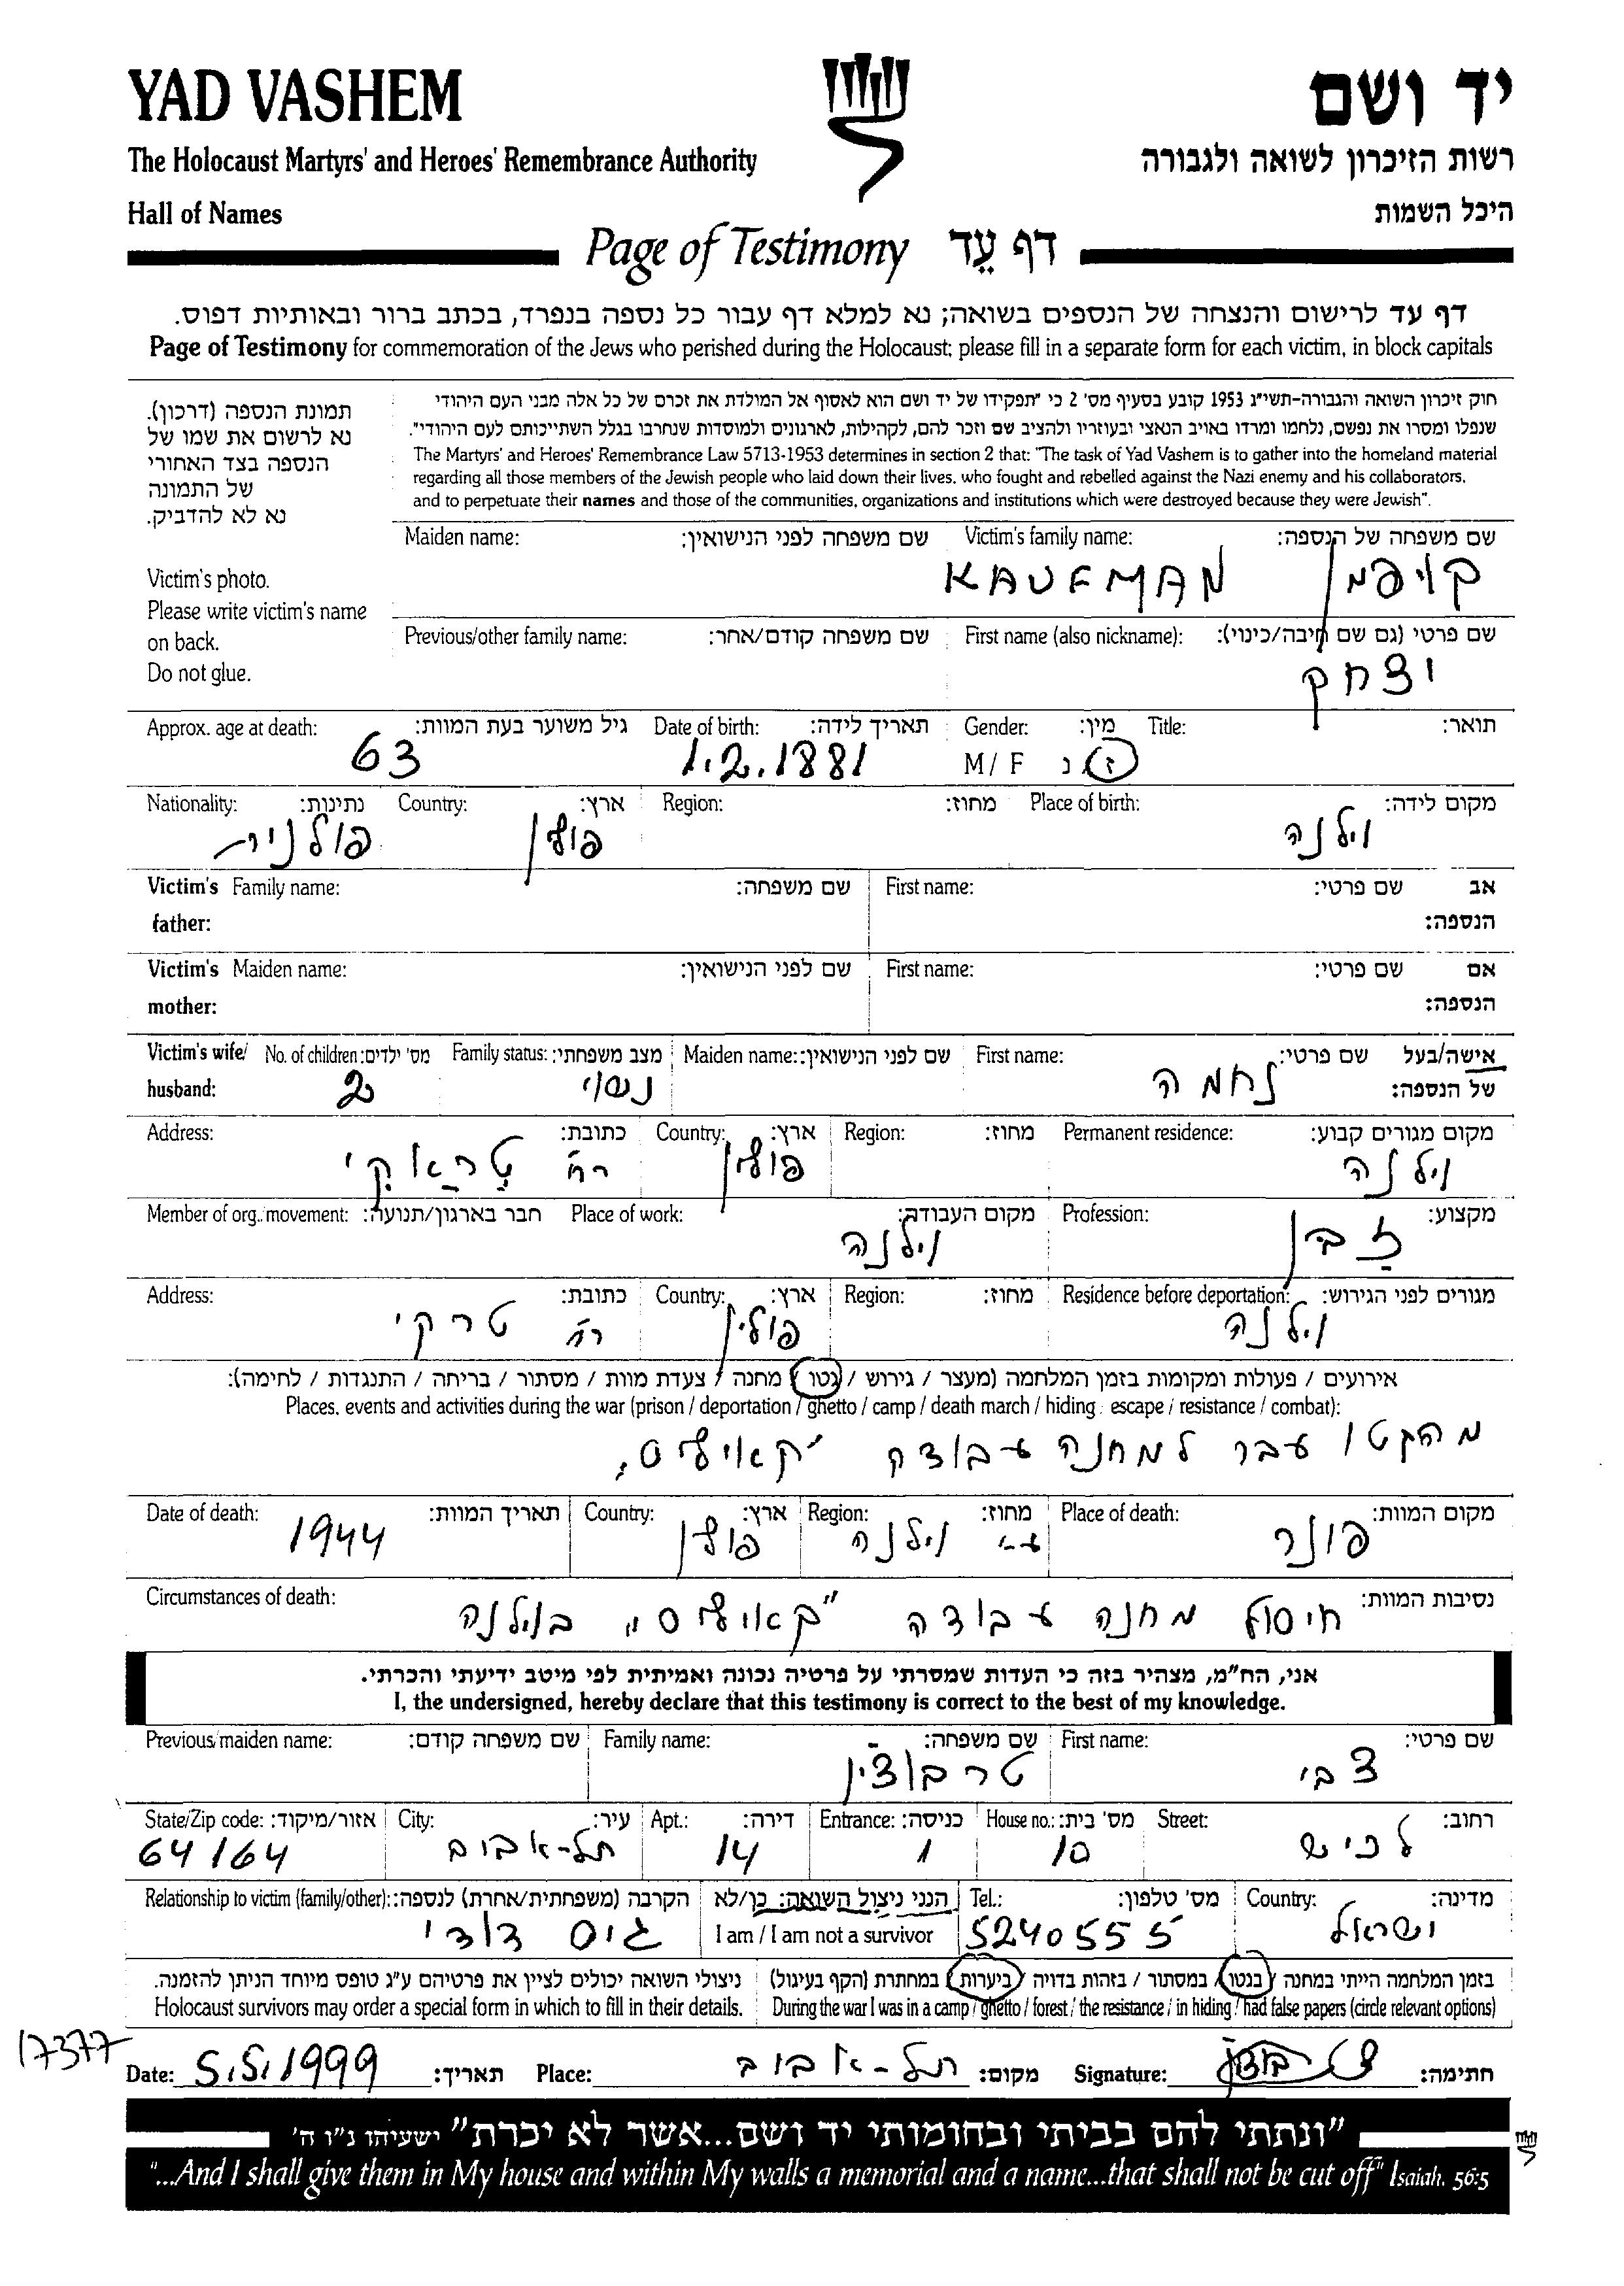 YAD VASHEM יד ושם
The Holocaust Martyrs' and Heroes' Remembrance Authority רשות הזיכרון לשואה ולגבורה
Hall of Names היכל השמות
Page of Testimony דף עֵד
דף עד לרישום והנצחה של הנספים בשואה; נא למלא דף עבור כל נספה בנפרד, בכתב ברור ובאותיות דפוס.
Page of Testimony for commemoration of the Jews who perished during the Holocaust; please fill in a separate form for each victim, in block capitals
תמונת הנספה (דרכון).
נא לרשום את שמו של
הנספה בצד האחורי
של התמונה
נא לא להדביק.
Victim's photo.
Please write victim's name
on back.
Do not glue.
חוק זיכרון השואה והגבורה-תשי"ג 1953 קובע בסעיף מס' 2 כי "תפקידו של יד ושם הוא לאסוף אל המולדת את זכרם של כל אלה מבני העם היהודי
שנפלו ומסרו את נפשם, נלחמו ומרדו באויב הנאצי ובעוזריו ולהציב שם וזכר להם, לקהילות, לארגונים ולמוסדות שנחרבו בגלל השתייכותם לעם היהודי".
The Martyrs' and Heroes' Remembrance Law 5713-1953 determines in section 2 that: "The task of Yad Vashem is to gather into the homeland material
regarding all those members of the Jewish people who laid down their lives, who fought and rebelled against the Nazi enemy and his collaborators,
and to perpetuate their names and those of the communities, organizations and institutions which were destroyed because they were Jewish".
Maiden name: שם משפחה לפני הנישואין: Victim's family name: שם משפחה של הנספה:
KAUFMAN קויפמן
Previous/other family name: שם משפחה קודם/אחר: First name (also nickname): שם פרטי (גם שם חיבה/כינוי):
יצחק
Approx. age at death: גיל משוער בעת המוות: Date of birth: תאריך לידה: Gender: מין: Title: תואר:
63 1.2.1881 M/ F ז נ
Nationality: נתינות: Country: ארץ: Region: מחוז: Place of birth: מקום לידה:
פולנית פולין וילנה
Victim's Family name: שם משפחה: First name: שם פרטי: אב
father: הנספה:
Victim's Maiden name: שם לפני הנישואין: First name: שם פרטי: אם
mother: הנספה:
Victim's wife/ No. of children: מס' ילדים: Family status: מצב משפחתי: Maiden name: שם לפני הנישואין: First name: שם פרטי: אישה/בעל
husband: 2 נשוי נחמה של הנספה:
Address: כתובת: Country: ארץ: Region: מחוז: Permanent residence: מקום מגורים קבוע:
רח' טראקי פולין וילנה
Member of org./movement: חבר בארגון/תנועה: Place of work: מקום העבודה: Profession: מקצוע:
וילנה זבן
Address: כתובת: Country: ארץ: Region: מחוז: Residence before deportation: מגורים לפני הגירוש:
רח' טרקי פולין וילנה
אירועים / פעולות ומקומות בזמן המלחמה (מעצר / גירוש / גטו / מחנה / צעדת מוות / מסתור / בריחה / התנגדות / לחימה):
Places, events and activities during the war (prison / deportation / ghetto / camp / death march / hiding / escape / resistance / combat):
מהקטו עבר למחנה עבודה "קאוילס"
Date of death: תאריך המוות: Country: ארץ: Region: מחוז: Place of death: מקום המוות:
1944 פולין ע"י וילנה פונר
Circumstances of death: נסיבות המוות:
חיסול מחנה עבודה "קאוילס" בוילנה
אני, הח"מ, מצהיר בזה כי העדות שמסרתי על פרטיה נכונה ואמיתית לפי מיטב ידיעתי והכרתי.
I, the undersigned, hereby declare that this testimony is correct to the best of my knowledge.
Previous/maiden name: שם משפחה קודם: Family name: שם משפחה: First name: שם פרטי:
טרבוצין צבי
State/Zip code: אזור/מיקוד: City: עיר: Apt.: דירה: Entrance: כניסה: House no.: מס' בית: Street: רחוב:
64164 תל-אביב 14 1 10 לכיש
Relationship to victim (family/other): הקרבה (משפחתית/אחרת) לנספה: הנני ניצול השואה: כן/לא Tel.: מס' טלפון: Country: מדינה:
גיס דודי I am / I am not a survivor 5240555 ישראל
ניצולי השואה יכולים לציין את פרטיהם ע"ג טופס מיוחד הניתן להזמנה. בזמן המלחמה הייתי במחנה / בגטו / במסתור / בזהות בדויה / ביערות / במחתרת (הקף בעיגול)
Holocaust survivors may order a special form in which to fill in their details. During the war I was in a camp / ghetto / forest / the resistance / in hiding / had false papers (circle relevant options)
17377
Date: 5.5.1999 תאריך: Place: תל-אביב מקום: Signature: חתימה:
"ונתתי להם בביתי ובחומותי יד ושם...אשר לא יכרת" ישעיהו נ"ו ה'
"...And I shall give them in My house and within My walls a memorial and a name...that shall not be cut off" Isaiah, 56:5